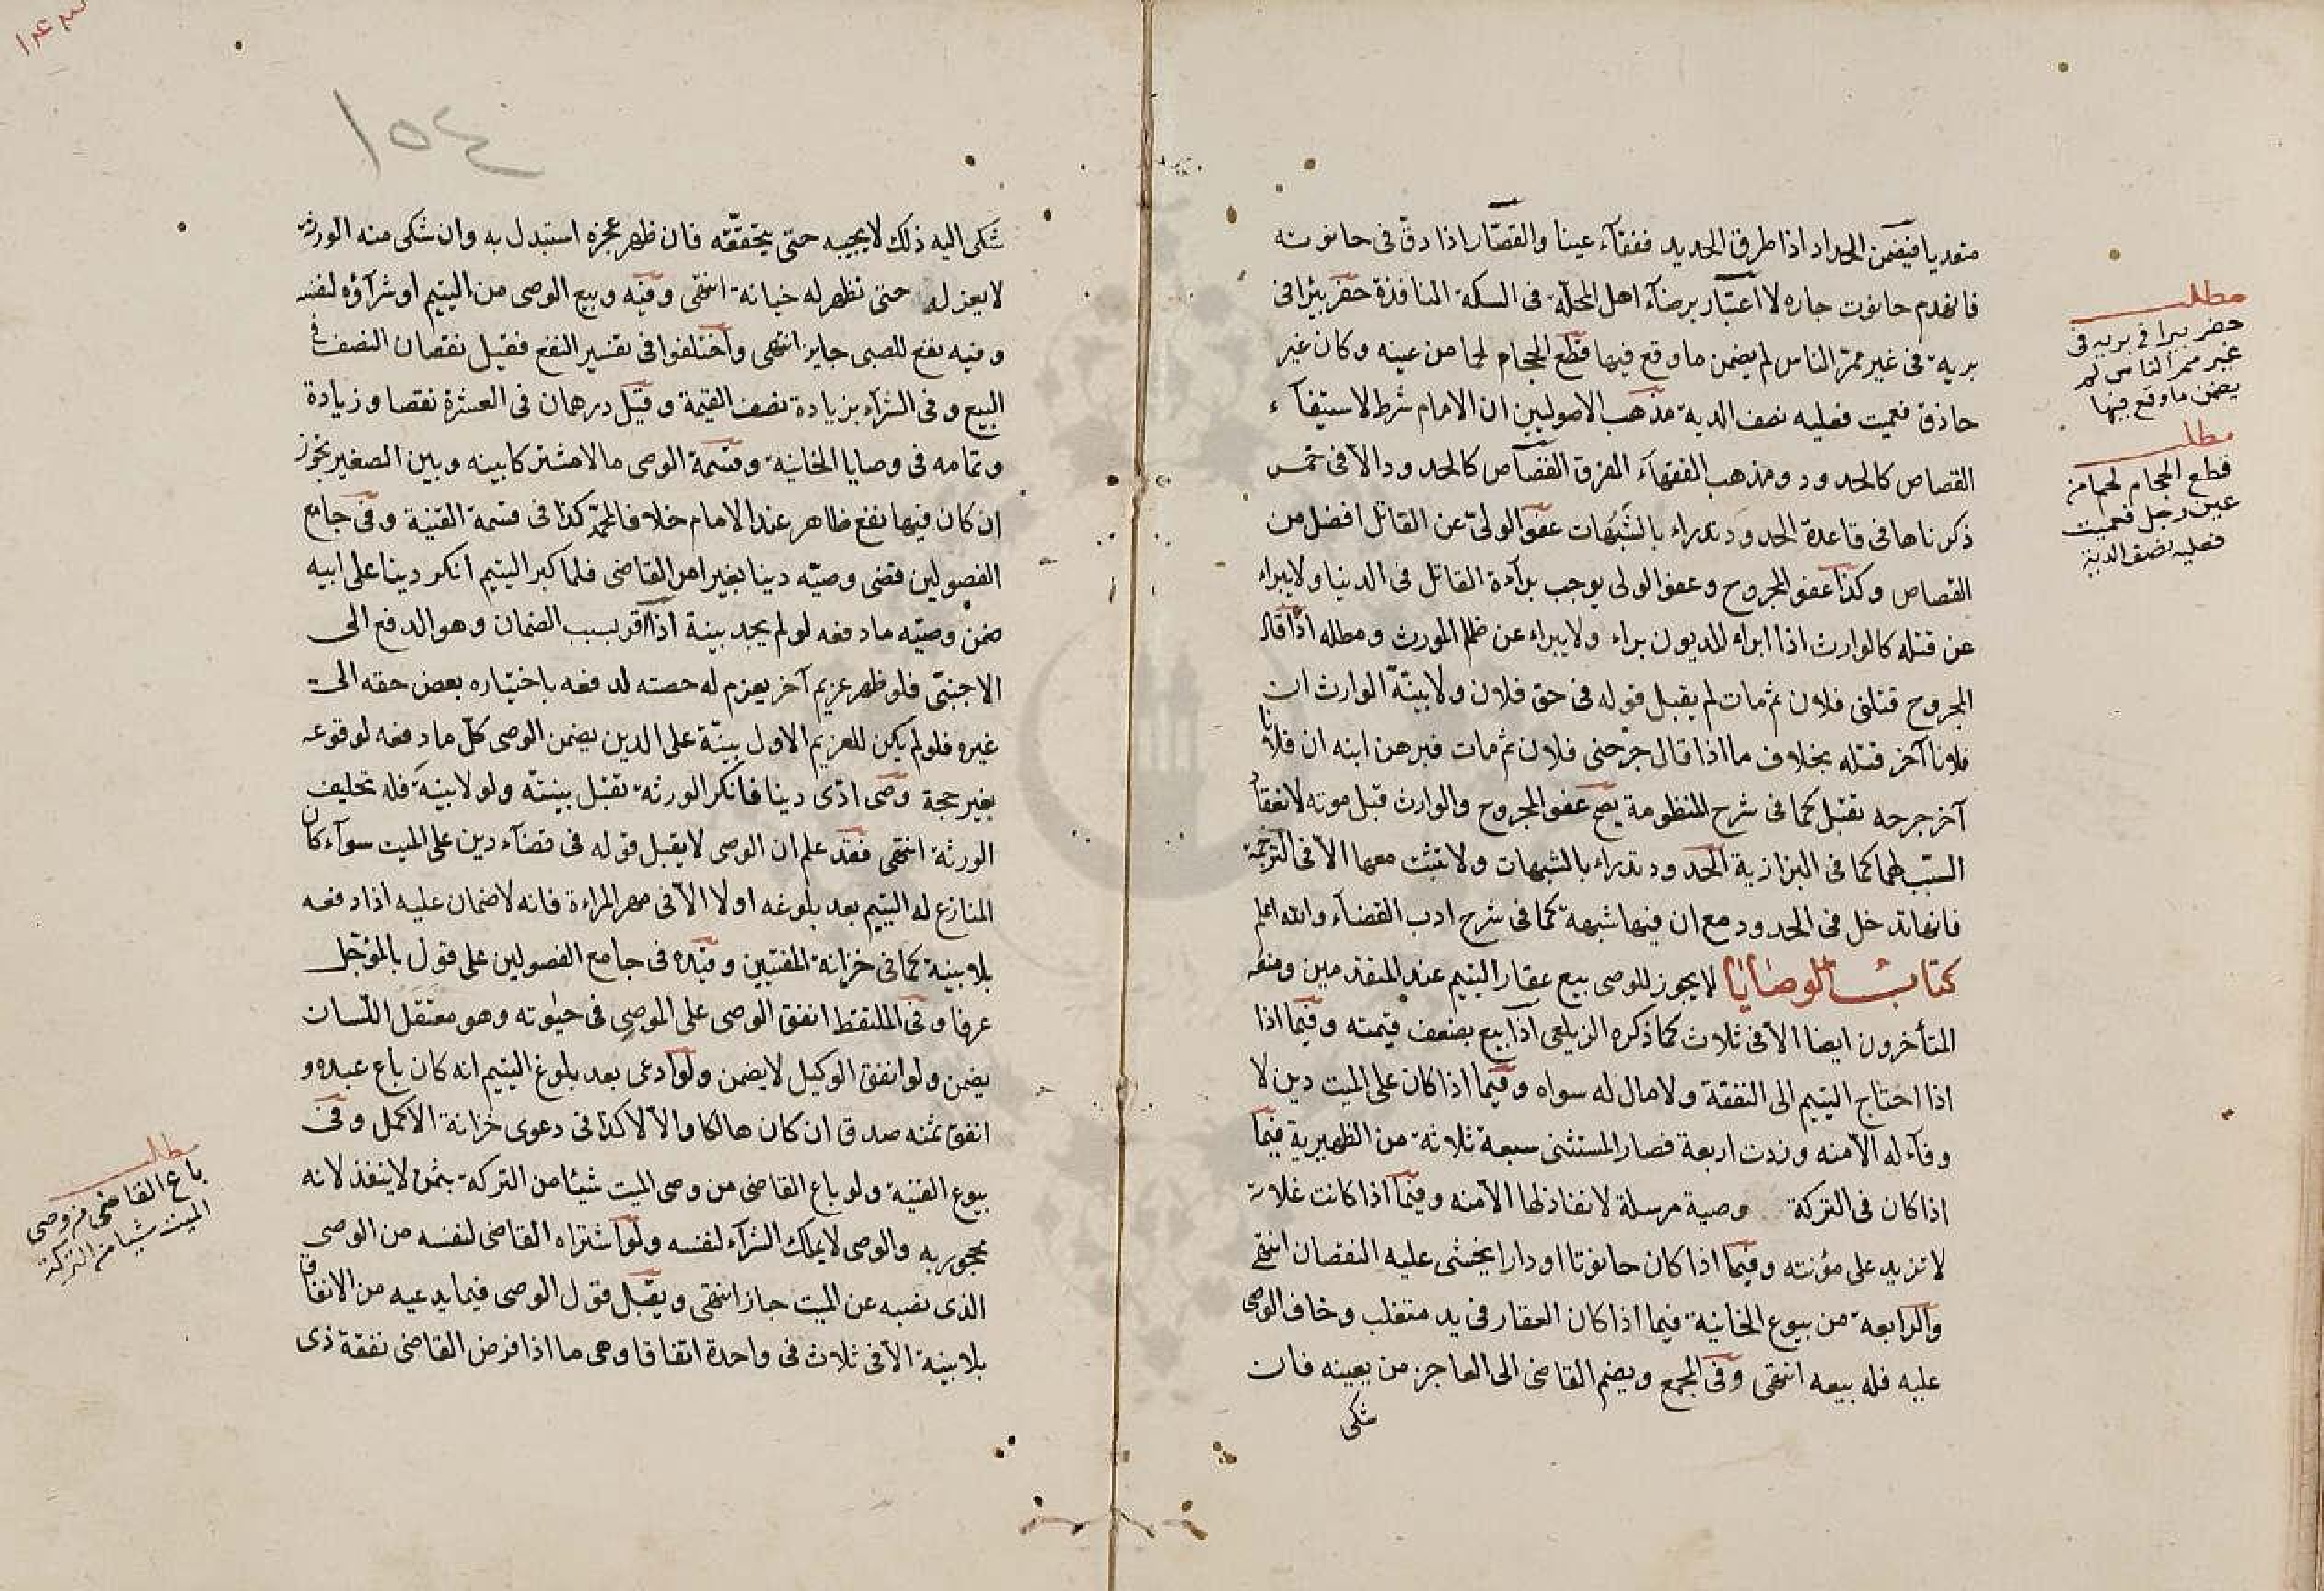 متعديا فيضمن الحداد اذا طرق الحديد ففقآء عينا والقصّار اذا دقّ فى حانوته
فانهدم حانوت جاره لا اعتبار برضآء اهل المحلّة فى السكة النافذة حفر بئرا فى
برية فى غير ممرّ الناس لم يضمن ما وقع فيها قطع الحجام لحما من عينه وكان غير
حاذق فعميت فعليه نصف الدية مذهب الاصوليين ان الامام شرط لاستيفآء
القصاص كالحدود ومذهب الفقهآء الفرق القصاص كالحدود الّا فى خمس
ذكرناها فى قاعدة الحدود تدراء بالشبهات عفو الولىّ عن القاتل افضل من
القصاص وكذا عفو المجروح وعفو الولى يوجب برآءة القاتل فى الدنيا ولا يبراء
عن قتله كالوارث اذا ابراء المديون براء ولا يبراء عن ظلم المورث ومطله اذا قال
المجروح قتلنى فلان ثم مات لم يقبل قوله فى حق فلان ولا بيّنة الوارث ان
فلانا آخر قتله بخلاف ما اذا قال جرحنى فلان ثم مات فبرهن ابنه ان فلانا
آخر جرحه تقبل كما فى شرح المنظومة يصح عفو المجروح والوارث قبل موته لانعقاد
السبب لهما كما فى البزازية الحدود تدراء بالشبهات ولا تثبت معها الّا فى الترجمة
فانها تدخل فى الحدود مع ان فيها شبهة كما فى شرح ادب القضآء والله اعلم
كتاب الوصايا لا يجوز للوصى بيع عقار اليتيم عند المتقدمين ومنعه
المتأخرون ايضا الّا فى ثلاث كما ذكره الزيلعى اذا بيع بضعف قيمته وفيما اذا
اذا احتاج اليتيم الى النفقة ولا مال له سواه وفيما اذا كان على الميت دين لا
وفآء له الّا منه وزدت اربعة فصار المستثنى سبعة ثلاثة من الظهيرية فيما
اذا كان فى التركة وصية مرسلة لا نفاذ لها الّا منه وفيما اذا كانت غلاته
لا تزيد على مؤنته وفيما اذا كان حانوتا او دارا يخشى عليه النقصان انتهى
والرابعة من بيوع الخانية فيما اذا كان العقار فى يد متغلب وخاف الوصى
عليه فله بيعه انتهى وفى المجمع ويضم القاضى الى العاجز من يعينه فان
شكى
مطلب
حفر بيرا فى بريه فى
غير ممر الناس لم
يضمن ما وقع فيها
مطلب
قطع الحجام لحما من
عين رجل فعميت
فعليه نصف الدية
١٤٣
١٥٤
شكى اليه ذلك لا يجيبه حتى يتحققّه فان ظهر عجزه استبدل به وان شكى منه الورثة
لا يعزله حتى تظهر له خيانة انتهى وفيه وبيع الوصى من اليتيم او شرآؤه لنفسه
وفيه نفع للصبى جايز انتهى واختلفوا فى تفسير النفع فقيل نقصان النصف فى
البيع وفى الشرآء بزيادة نصف القيمة وقيل درهمان فى العشرة نقصا وزيادة
وتمامه فى وصايا الخانية وقسمة الوصى مالا مشتركا بينه وبين الصغير تجوز
ان كان فيها نفع ظاهر عند الامام خلافا لمحمّد كذا فى قسمة القنية وفى جامع
الفصولين قضى وصيّه دينا بغير امر القاضى فلما كبر اليتيم انكر دينا على ابيه
ضمن وصيّه ما دفعه لو لم يجد بينة اذا اقر بسبب الضمان وهو الدفع الى
الاجنبىّ فلو ظهر غريم آخر يغرم له حصته لدفعه باختياره بعض حقه الى
غيره فلو لم يكن للغريم الاول بيّنة على الدين يضمن الوصى كلّ ما دفعه لوقوعه
بغير حجة وصى ادّى دينا فانكر الورثة تقبل بينته ولو لا بينة فله تحليف
الورثة انتهى فقد علم ان الوصى لا يقبل قوله فى قضآء دين على الميت سوآء كان
المنازع له اليتيم بعد بلوغه اولا الّا فى مهر المراءة فانه لا ضمان عليه اذا دفعه
بلا بينة كما فى خزانة المفتيين وقيّده فى جامع الفصولين على قول بالمؤجّل
عرفا وفى الملتقط انفق الوصى على الموصى فى حيوته وهو معتقل اللّسان
يضمن ولو انفق الوكيل لا يضمن ولو ادعى بعد بلوغ اليتيم انه كان باع عبده و
انفق ثمنه صدق ان كان هالكا والّا لا كذا فى دعوى خزانة الاكمل وفى
بيوع القنية ولو باع القاضى من وصى الميت شيئا من التركة بثمن لا ينفذ لانه
محجور به والوصى لا يملك الشرآء لنفسه ولو اشتراه القاضى لنفسه من الوصى
الذى نصبه عن الميت جاز انتهى ويقبل قول الوصى فيما يدعيه من الانفاق
بلا بينة الّا فى ثلاث فى واحدة اتفاقا وهى ما اذا فرض القاضى نفقة ذى
مطلب
باع القاضى من وصى
الميت شيئا من التركة